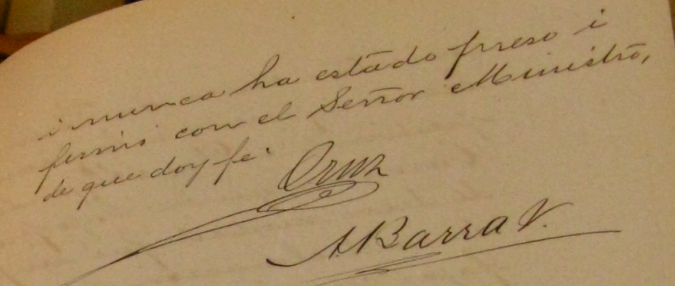 i nunca ha estado preso i
firmó con el Señor Ministro,
de que doy fe.
Cruz
A Barra V.